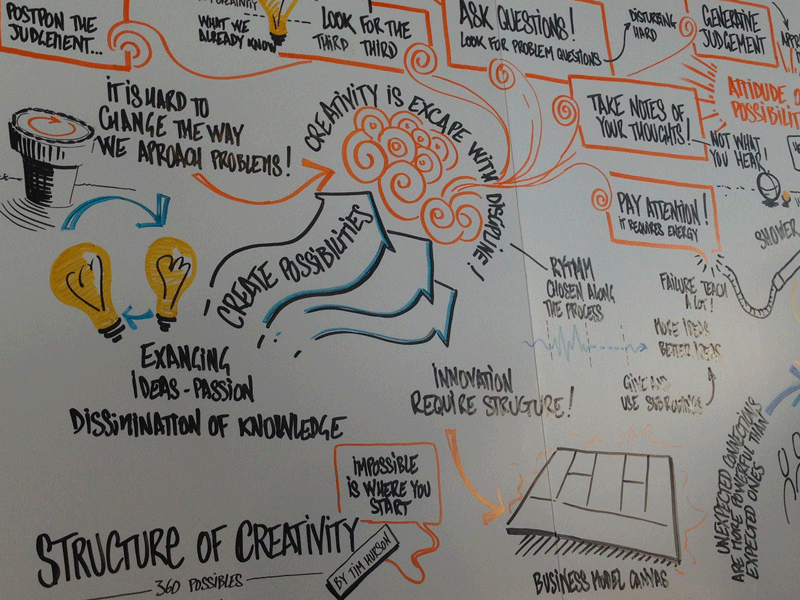 POSTPON THE
JUDGEMENT...
WHAT WE
ALREADY KNOW
LOOK FOR THE
THIRD THIRD
ASK QUESTIONS!
LOOK FOR PROBLEM QUESTIONS
DISTURBING
HARD
GENERATIVE
JUDGEMENT
IT IS HARD TO
CHANGE THE WAY
WE APROACH PROBLEMS!
CREATIVITY IS EXCAPE WITH DISCIPLINE!
TAKE NOTES OF
YOUR THOUGHTS!
NOT WHAT
YOU HEAR!
PAY ATTENTION!
IT REQUIRES ENERGY
SHOWER
CREATE POSSIBILITIES
RYTMM
CHOSEN ALONG
THE PROCESS
FAILURE TEACH
A LOT!
MORE IDEAS
BETTER IDEAS
GIVE AND
USE
EXANGING
IDEAS - PASSION
DISSIMINATION OF KNOWLEDGE
INNOVATION
REQUIRE STRUCTURE!
IMPOSSIBLE
IS WHERE YOU
START
UNEXPECTED CONNECTIONS
ARE MORE POWERFULL THAN
EXPECTED ONES
STRUCTURE OF CREATIVITY
BY TIM HURSON
360 POSSIBLES
BUSINESS MODEL CANVAS